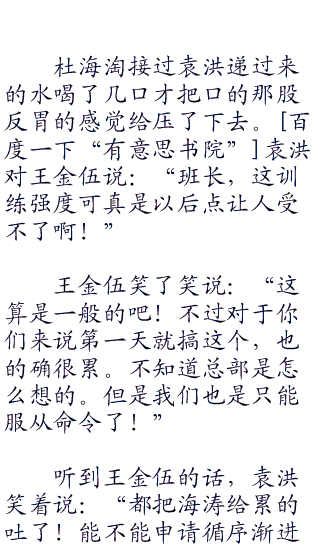 杜海淘接过袁洪递过来
的水喝了几口才把口的那股
反胃的感觉给压了下去。[百
度一下“有意思书院”]袁洪
对王金伍说：“班长，这训
练强度可真是以后点让人受
不了啊！”
王金伍笑了笑说：“这
算是一般的吧！不过对于你
们来说第一天就搞这个，也
的确很累。不知道总部是怎
么想的。但是我们也是只能
服从命令了！”
听到王金伍的话，袁洪
笑着说：“都把海涛给累的
吐了！能不能申请循序渐进